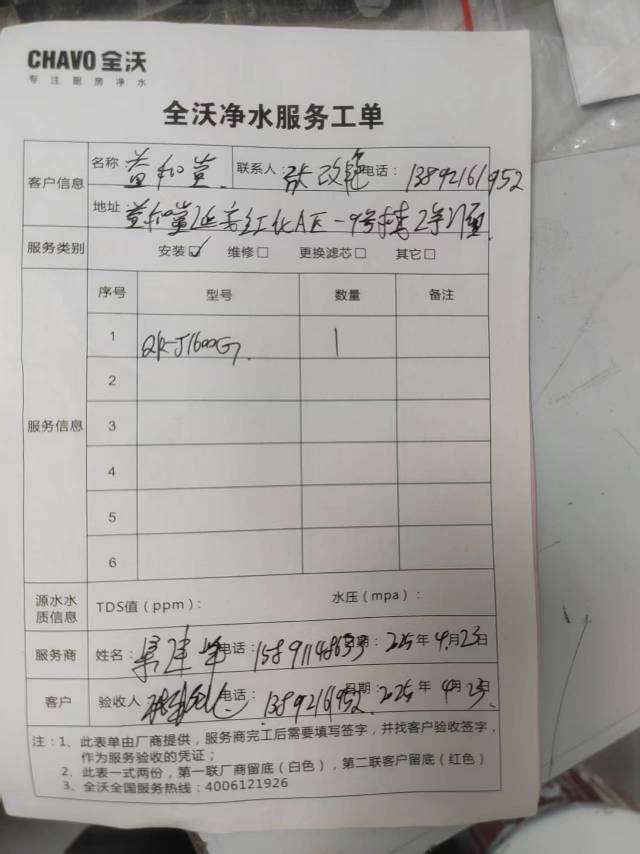 CHAVO 全沃
专注厨房净水
全沃净水服务工单
客户信息
名称 益和堂 联系人: 张改艳 电话: 13892161952
地址 益和堂延安红化A区-9号楼2号门面
服务类别 安装☑ 维修□ 更换滤芯□ 其它□
服务信息
序号 型号 数量 备注
1 QR-J1600G 1
2
3
4
5
6
源水水质信息 TDS值(ppm): 水压(mpa):
服务商 姓名: 电话: 日期: 2025年4月23日
客户 验收人 电话: 13892161952 日期: 2025年4月23日
注:1、此表单由厂商提供,服务商完工后需要填写签字,并找客户验收签字,
作为服务验收的凭证;
2、此表一式两份,第一联厂商留底(白色),第二联客户留底(红色)
3、全沃全国服务热线:4006121926